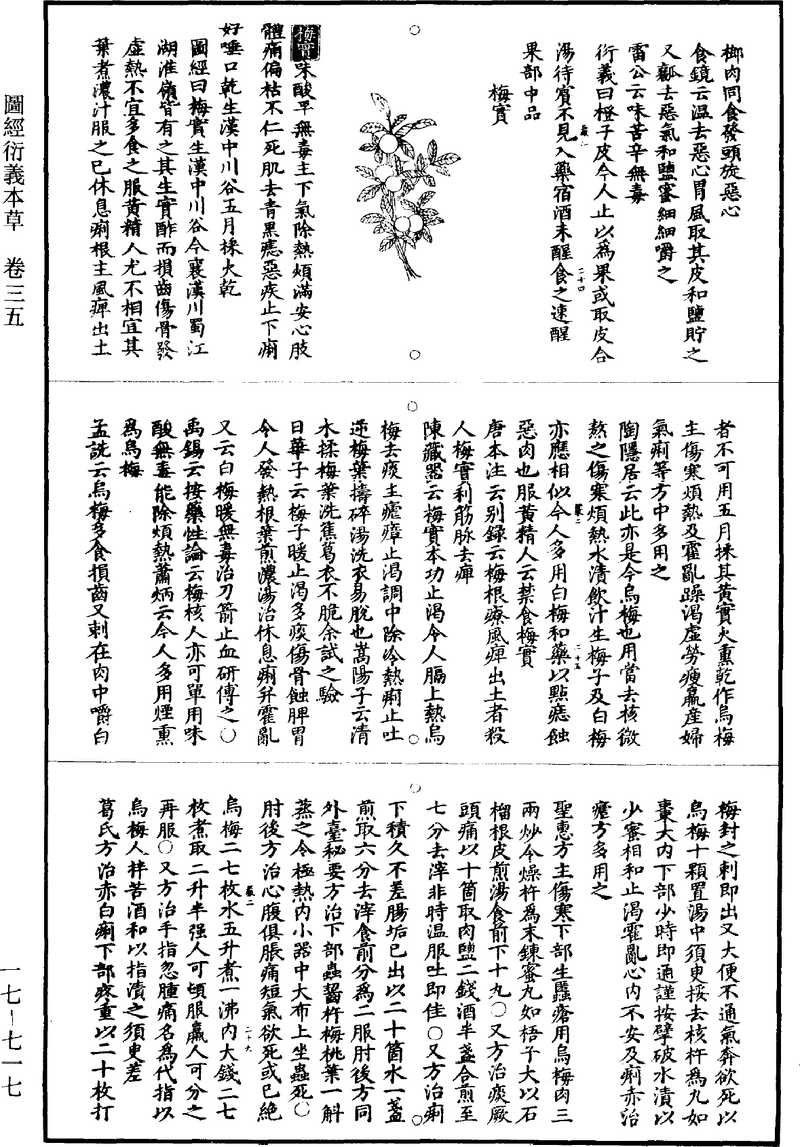 圖經衍義本草　卷三五
一七—七一七
榔肉同食發頭旋惡心
食鏡云溫去惡心胃風取其皮和鹽貯之
又瓤去惡氣和鹽蜜細細嚼之
雷公云味苦辛無毒
衍義曰橙子皮今人止以為果或取皮合
湯待賓不見入藥宿酒未醒食之速醒
果部中品
梅實
梅實味酸平無毒主下氣除熱煩滿安心肢
體痛偏枯不仁死肌去青黑痣惡疾止下痢
好唾口乾生漢中川谷五月採火乾
圖經曰梅實生漢中川谷今襄漢川蜀江
湖淮嶺皆有之其生實酢而損齒傷骨發
虛熱不宜多食之服黃精人尤不相宜其
葉煮濃汁服之已休息痢根主風痺出土
者不可用五月採其黃實火熏乾作烏梅
主傷寒煩熱及霍亂躁渴虛勞瘦羸産婦
氣痢等方中多用之
陶隱居云此亦是今烏梅也用當去核微
熬之傷寒煩熱水漬飲汁生梅子及白梅
亦應相似今人多用白梅和藥以點痣蝕
惡肉也服黃精人云禁食梅實
唐本注云別錄云梅根療風痺出土者殺
人梅實利筋脉去痺
陳藏器云梅實本功止渴令人膈上熱烏
梅去痰主瘧瘴止渴調中除冷熱痢止吐
逆梅葉擣碎湯洗衣易脫也嵩陽子云清
水揉梅葉洗蕉葛衣不脆余試之驗
日華子云梅子暖止渴多痰傷骨蝕脾胃
令人發熱根葉煎濃湯治休息痢并霍亂
又云白梅暖無毒治刀箭止血研傅之○
禹錫云按藥性論云梅核人亦可單用味
酸無毒能除煩熱蕭炳云今人多用煙熏
為烏梅
孟詵云烏梅多食損齒又刺在肉中嚼白
梅封之刺即出又大便不通氣奔欲死以
烏梅十顆置湯中須臾挼去核杵為丸如
棗大內下部少時即通謹按擘破水漬以
少蜜相和止渴霍亂心內不安及痢赤治
瘧方多用之
聖惠方主傷寒下部生䘌瘡用烏梅肉三
兩炒令燥杵為末鍊蜜丸如梧子大以石
榴根皮煎湯食前下十丸○又方治痰厥
頭痛以十箇取肉鹽二錢酒半盞合煎至
七分去滓非時溫服吐即佳○又方治痢
下積久不差腸垢已出以二十箇水一盞
煎取六分去滓食前分為二服肘後方同
外臺秘要方治下部蟲齧杵梅桃葉一斛
蒸之令極熱內小器中大布上坐蟲死○
肘後方治心腹俱脹痛短氣欲死或已絕
烏梅二七枚水五升煮一沸內大錢二七
枚煮取二升半强人可頓服羸人可分之
再服○又方治手指忽腫痛名為代指以
烏梅人拌苦酒和以指漬之須臾差
葛氏方治赤白痢下部疼重以二十枚打